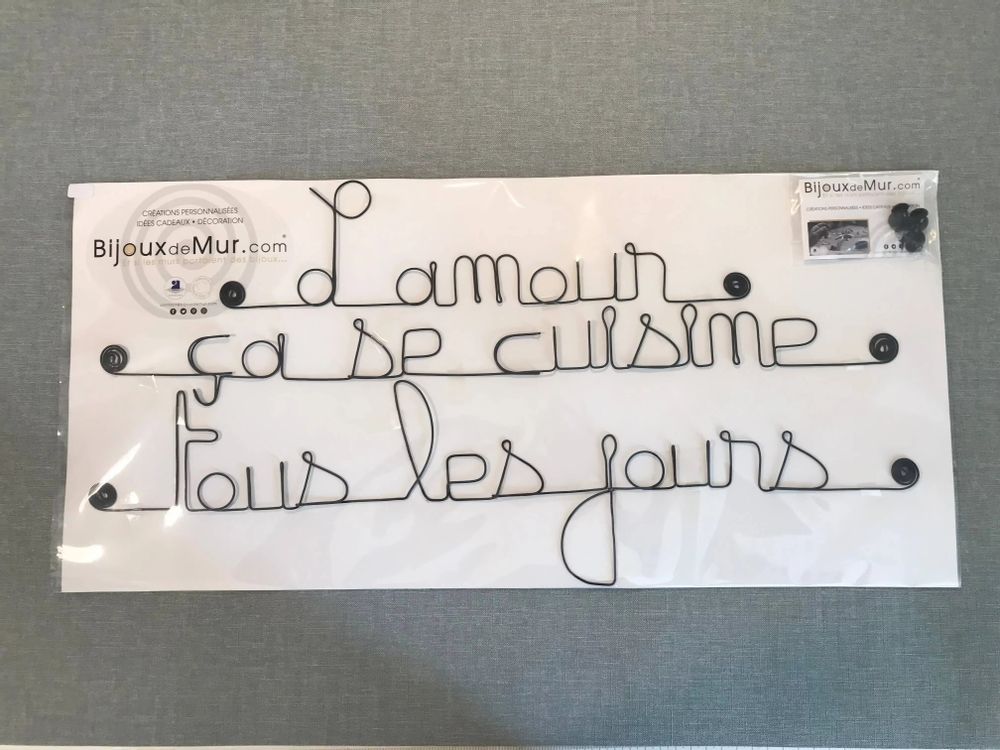 CRÉATIONS PERSONNALISÉES
IDÉES CADEAUX • DÉCORATION
BijouxdeMur.com®
Et si les murs portaient des bijoux...
BijouxdeMur.com®
L amour
ça se cuisine
tous les jours